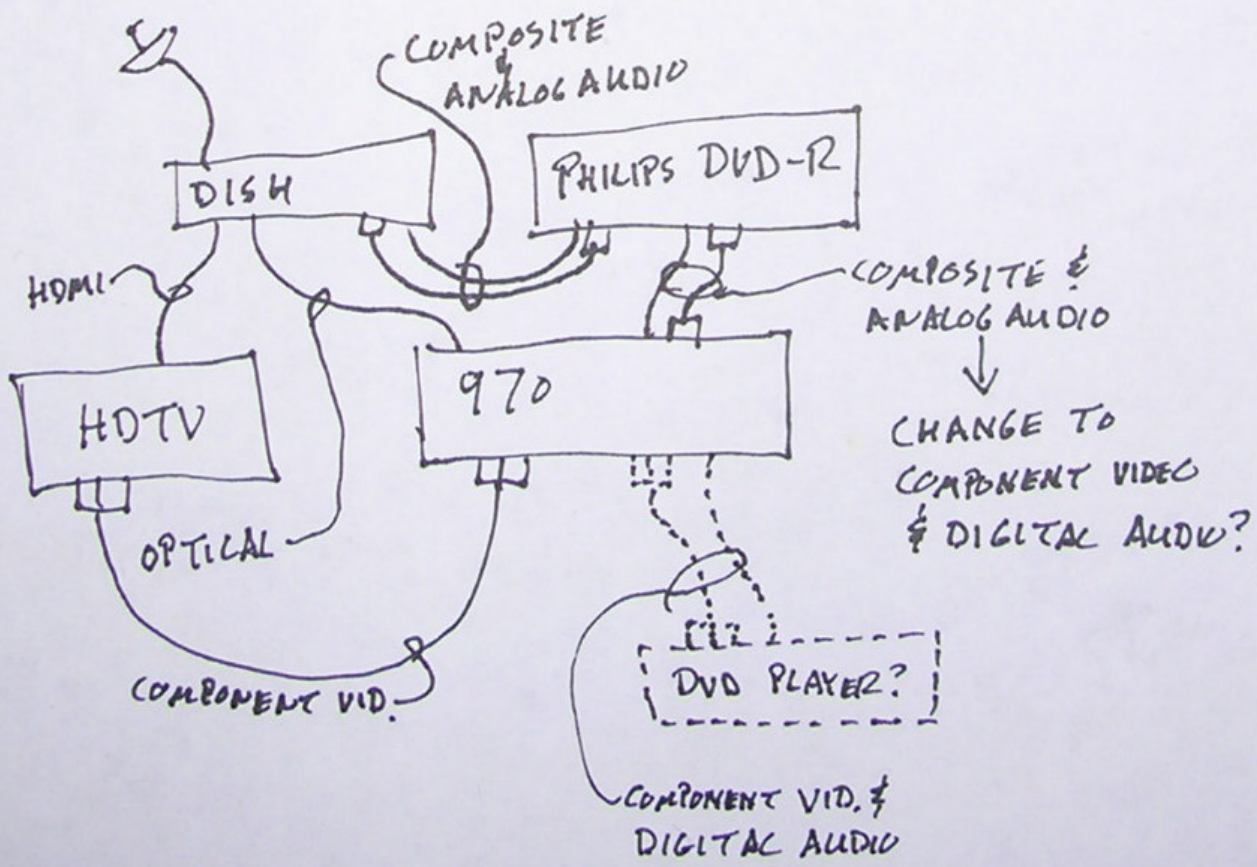 COMPOSITE
&
ANALOG AUDIO
DISH
PHILIPS DVD-R
HDMI
COMPOSITE &
ANALOG AUDIO
HDTV
970
CHANGE TO
COMPONENT VIDEO
& DIGITAL AUDIO?
OPTICAL
COMPONENT VID.
DVD PLAYER?
COMPONENT VID. &
DIGITAL AUDIO